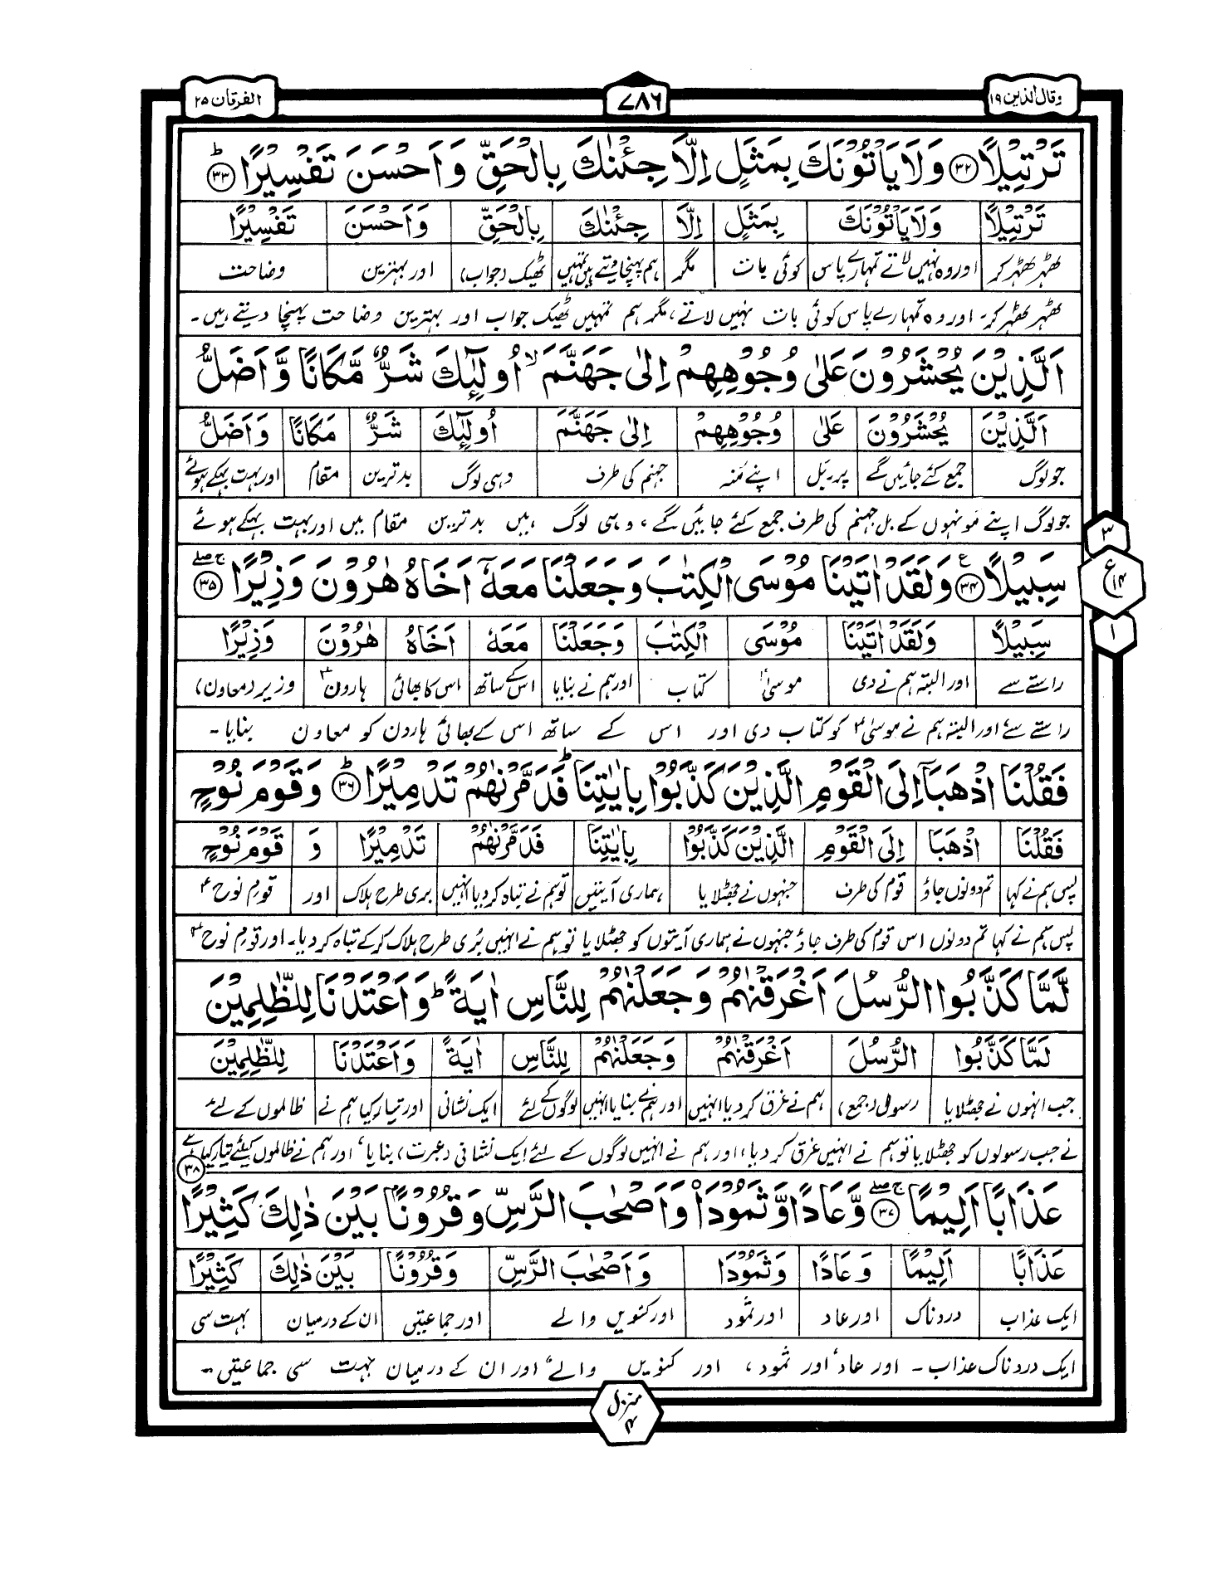 وقال الذین ۱۹
۷۸۶
الفرقان ۲۵
تَرْتِيْلًا ﴿۳۲﴾ وَلَا يَاْتُوْنَكَ بِمَثَلٍ اِلَّا جِئْنٰكَ بِالْحَقِّ وَاَحْسَنَ تَفْسِيْرًا ﴿۳۳﴾ؕ
تَرْتِيْلًا وَلَا يَاْتُوْنَكَ بِمَثَلٍ اِلَّا جِئْنٰكَ بِالْحَقِّ وَاَحْسَنَ تَفْسِيْرًا
ٹھہر ٹھہر کر اور وہ نہیں لاتے تمہارے پاس کوئی بات مگر ہم پہنچا دیتے ہیں تمہیں ٹھیک (جواب) اور بہترین وضاحت
ٹھہر ٹھہر کر۔ اور وہ تمہارے پاس کوئی بات نہیں لاتے، مگر ہم تمہیں ٹھیک جواب اور بہترین وضاحت پہنچا دیتے ہیں۔
اَلَّذِيْنَ يُحْشَرُوْنَ عَلٰى وُجُوْهِهِمْ اِلٰى جَهَنَّمَ ۙ اُولٰٓئِكَ شَرٌّ مَّكَانًا وَّاَضَلُّ
اَلَّذِيْنَ يُحْشَرُوْنَ عَلٰى وُجُوْهِهِمْ اِلٰى جَهَنَّمَ اُولٰٓئِكَ شَرٌّ مَكَانًا وَاَضَلُّ
جو لوگ جمع کئے جائیں گے پر۔بَل اپنے مُنہ جہنم کی طرف وہی لوگ بدترین مقام اور بہت بہکے ہوئے
جو لوگ اپنے مونہوں کے بل جہنم کی طرف جمع کئے جائیں گے، وہی لوگ ہیں بدترین مقام میں اور بہت بہکے ہوئے
۳
ع ۱۴
۱
سَبِيْلًا ﴿۳۴﴾ع وَلَقَدْ اٰتَيْنَا مُوْسَى الْكِتٰبَ وَجَعَلْنَا مَعَهٗۤ اَخَاهُ هٰرُوْنَ وَزِيْرًا ﴿۳۵﴾ۚۖ
سَبِيْلًا وَلَقَدْ اٰتَيْنَا مُوْسَى الْكِتٰبَ وَجَعَلْنَا مَعَهٗ اَخَاهُ هٰرُوْنَ وَزِيْرًا
راستے سے اور البتہ ہم نے دی موسیٰؑ کتاب اور ہم نے بنایا اس کے ساتھ اس کا بھائی ہارونؑ وزیر (معاون)
راستے سے اور البتہ ہم نے موسیٰؑ کو کتاب دی اور اس کے ساتھ اس کے بھائی ہارون کو معاون بنایا۔
فَقُلْنَا اذْهَبَاۤ اِلَى الْقَوْمِ الَّذِيْنَ كَذَّبُوْا بِاٰيٰتِنَا ؕ فَدَمَّرْنٰهُمْ تَدْمِيْرًا ﴿۳۶﴾ؕ وَقَوْمَ نُوْحٍ
فَقُلْنَا اذْهَبَا اِلَى الْقَوْمِ الَّذِيْنَ كَذَّبُوْا بِاٰيٰتِنَا فَدَمَّرْنٰهُمْ تَدْمِيْرًا وَ قَوْمَ نُوْحٍ
پس ہم نے کہا تم دونوں جاؤ قوم کی طرف جنہوں نے جھٹلایا ہماری آیتیں تو ہم نے تباہ کر دیا انہیں بری طرح ہلاک اور قوم نوحؑ
پس ہم نے کہا تم دونوں اس قوم کی طرف جاؤ جنہوں نے ہماری آیتوں کو جھٹلایا تو ہم نے انہیں بُری طرح ہلاک کر کے تباہ کر دیا۔ اور قومِ نوحؑ
لَّمَّا كَذَّبُوا الرُّسُلَ اَغْرَقْنٰهُمْ وَجَعَلْنٰهُمْ لِلنَّاسِ اٰيَةً ؕ وَاَعْتَدْنَا لِلظّٰلِمِيْنَ
لَمَّا كَذَّبُوا الرُّسُلَ اَغْرَقْنٰهُمْ وَجَعَلْنٰهُمْ لِلنَّاسِ اٰيَةً وَاَعْتَدْنَا لِلظّٰلِمِيْنَ
جب انہوں نے جھٹلایا رسول (جمع) ہم نے غرق کر دیا انہیں اور ہم نے بنایا انہیں لوگوں کے لئے ایک نشانی اور تیار کیا ہم نے ظالموں کے لئے
نے جب رسولوں کو جھٹلایا تو ہم نے انہیں غرق کر دیا، اور ہم نے انہیں لوگوں کے لئے ایک نشانی (عبرت) بنایا، اور ہم نے ظالموں کیلئے تیار کیا ہے
عَذَابًا اَلِيْمًا ﴿۳۷﴾ۚۖ وَّعَادًا وَّثَمُوْدَا۠ وَاَصْحٰبَ الرَّسِّ وَقُرُوْنًاۢ بَيْنَ ذٰلِكَ كَثِيْرًا ﴿۳۸﴾
عَذَابًا اَلِيْمًا وَعَادًا وَثَمُوْدَا وَاَصْحٰبَ الرَّسِّ وَقُرُوْنًا بَيْنَ ذٰلِكَ كَثِيْرًا
ایک عذاب دردناک اور عاد اور ثمود اور کنویں والے اور جماعتیں ان کے درمیان بہت سی
ایک دردناک عذاب۔ اور عاد اور ثمود، اور کنویں والے، اور ان کے درمیان بہت سی جماعتیں۔
منزل ۴